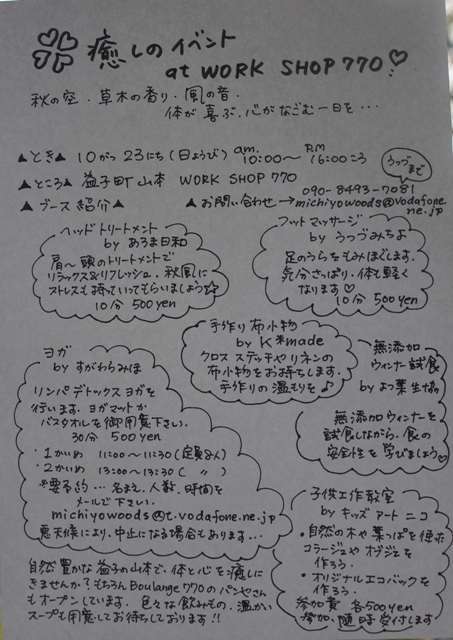 癒しのイベント
at WORK SHOP 770
秋の空・草木の香り・風の音・
体が喜ぶ、心がなごむ一日を…
▲とき▲ 10がつ 23にち(日ようび) am. 10:00〜 P.M 16:00ころ
▲ところ▲ 益子町山本 WORK SHOP 770
うつづまで
090-8493-7081
▲ブース紹介▲ ▲お問い合わせ→michiyowoods@vodafone.ne.jp
ヘッドトリートメント
by あるま日和
肩〜頭のトリートメントで
リラックス&リフレッシュ。秋風に
ストレスも持っていってもらいましょう☆
10分 500yen
フットマッサージ
by うつづみちよ
足のうらをもみほぐします。
気分さっぱり・体も軽く
なります♡
10分 500yen
手作り布小物
by K*made
クロスステッチやリネンの
布小物をお持ちします。
手作りの温もりを♪
無添加
ウィンナー試食
by よつ葉生協
無添加ウィンナーを
試食しながら、食の
安全性を学びましょう♡
ヨガ
by すがわらみほ
リンパデトックスヨガを
行います。ヨガマットか
バスタオルを御用意下さい。
30分 500yen
・1かいめ 11:00〜11:30(定員8人)
・2かいめ 13:00〜13:30( 〃 )
*要予約…名まえ、人数、時間を
メールで下さい。
michiyowoods@t.vodafone.ne.jp
悪天候により、中止になる場合もあります…
子供工作教室
by キッズアートニコ
・自然の木や葉っぱを使った
コラージュやオブジェを
作ろう。
・オリジナルエコバックを
作ろう。
参加費 各500yen
参加、随時受付します
自然豊かな益子の山本で、体と心を癒しに
きませんか?もちろんBoulange770のパンやさん
もオープンしています。色々な飲みもの、温かい
スープも用意してお待ちしております!!